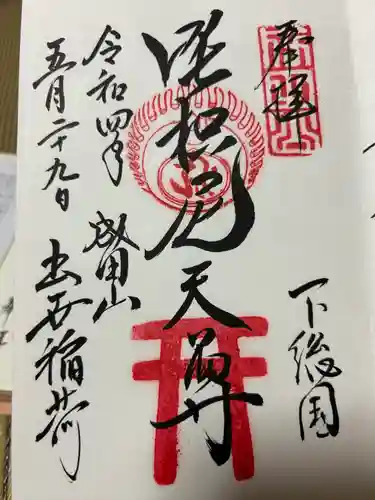 奉拝
下総国
荼枳尼天尊
成田山
出世稲荷
令和四年
五月二十九日